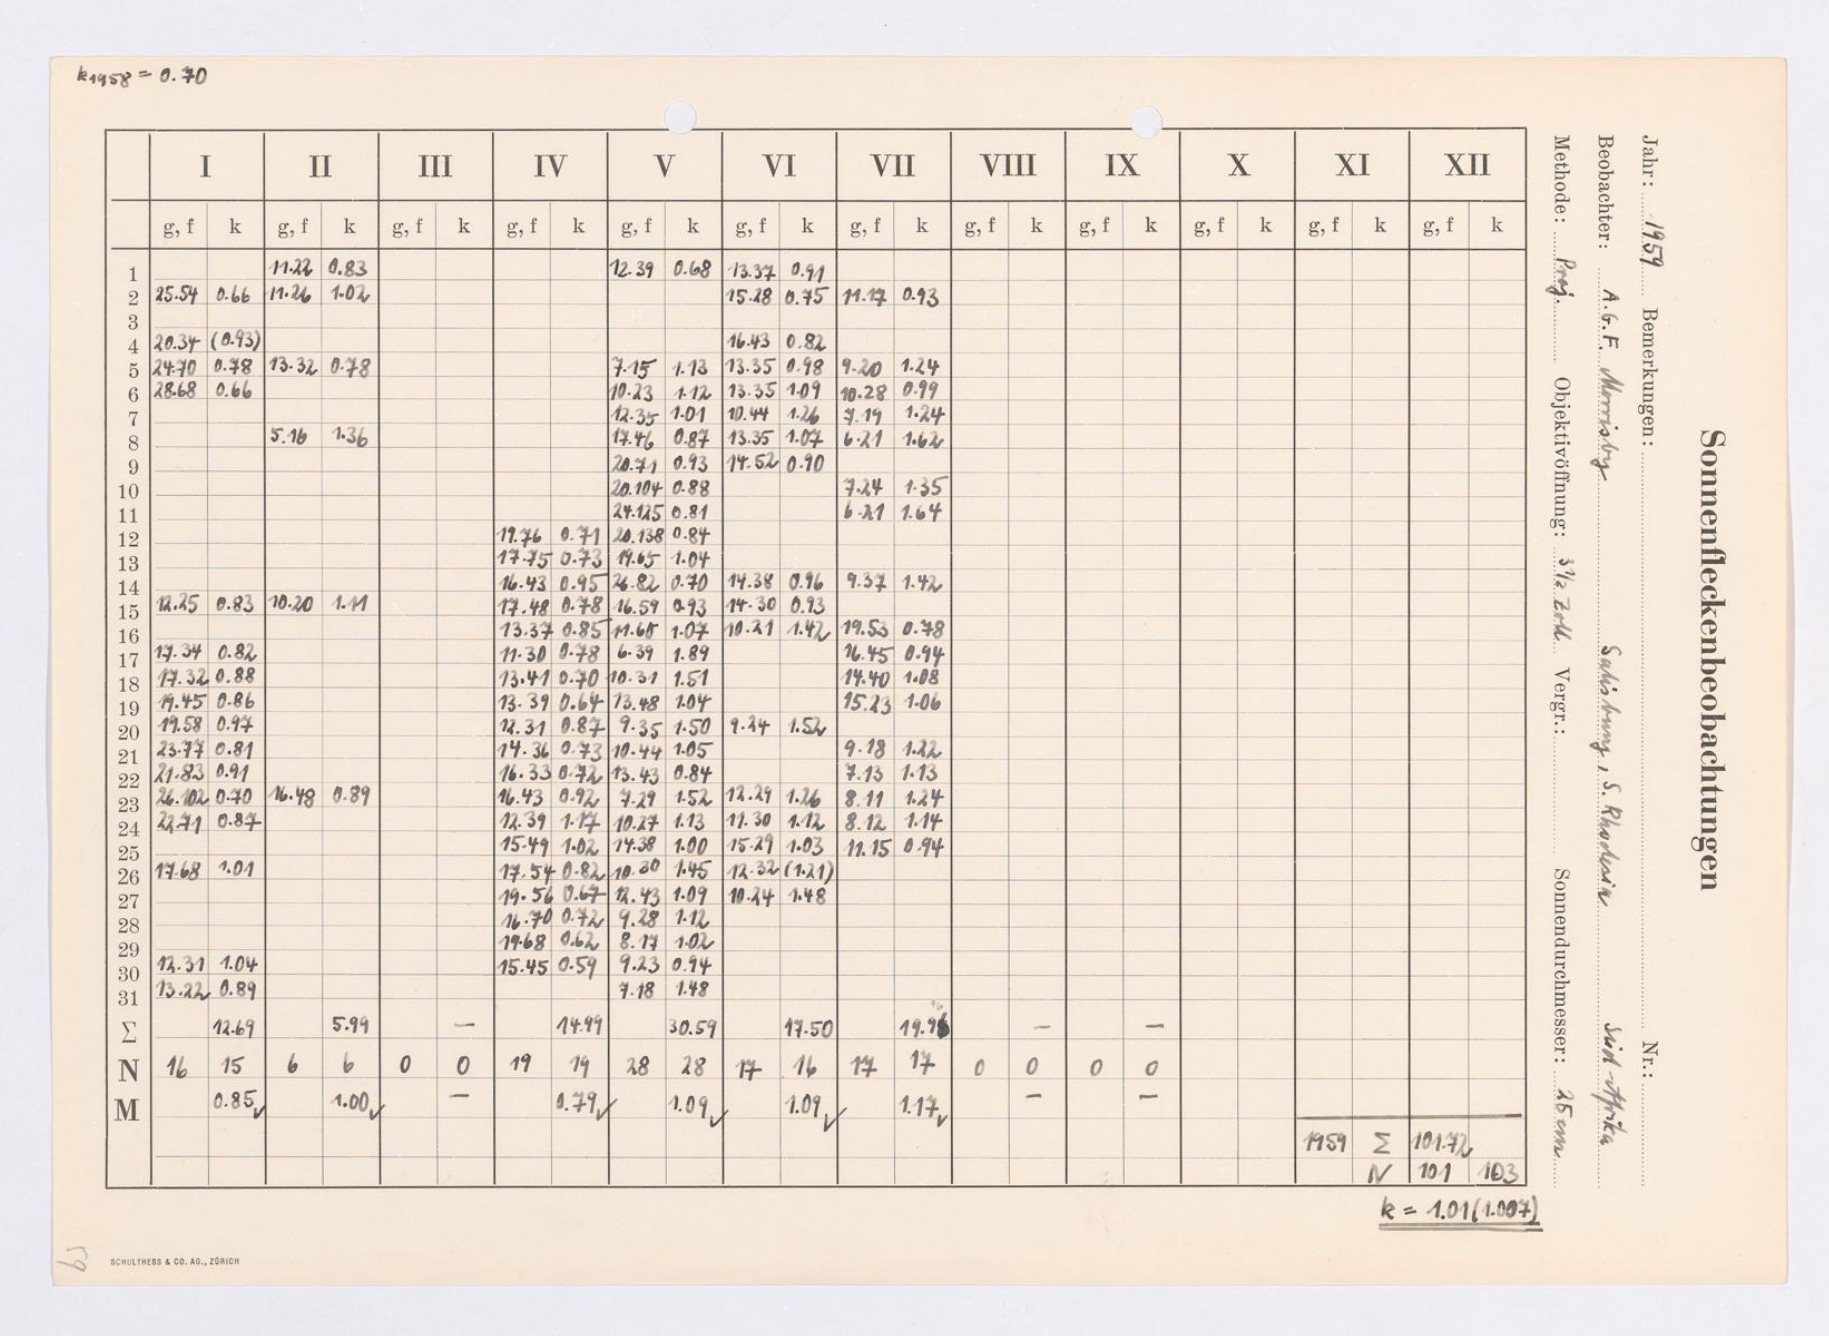 k1958 = 0.70
Sonnenfleckenbeobachtungen
Jahr: 1959 Bemerkungen: Nr.:
Beobachter: A.G.F. Morrisby Salisbury, S. Rhodesia Süd-Afrika
Methode: Proj. Objektivöffnung: 3½ Zoll Vergr.: Sonnendurchmesser: 25 cm
I II III IV V VI VII VIII IX X XI XII
g, f k g, f k g, f k g, f k g, f k g, f k g, f k g, f k g, f k g, f k g, f k g, f k
1 11.22 0.83 12.39 0.68 13.37 0.91
2 25.54 0.66 11.26 1.02 15.28 0.75 11.17 0.93
3
4 20.34 (0.93) 16.43 0.82
5 24.70 0.78 13.32 0.78 7.15 1.13 13.35 0.98 9.20 1.24
6 28.68 0.66 10.23 1.12 13.35 1.09 10.28 0.99
7 12.35 1.01 10.44 1.26 7.19 1.24
8 5.16 1.36 17.46 0.87 13.35 1.07 6.21 1.62
9 20.71 0.93 14.52 0.90
10 20.104 0.88 7.24 1.35
11 24.125 0.81 6.21 1.64
12 19.76 0.71 20.138 0.84
13 17.75 0.73 19.65 1.04
14 16.43 0.95 26.82 0.70 14.38 0.96 9.37 1.42
15 12.25 0.83 10.20 1.11 17.48 0.78 16.59 0.93 14.30 0.93
16 13.37 0.85 11.60 1.07 10.21 1.42 19.53 0.78
17 17.34 0.82 11.30 0.78 6.39 1.89 16.45 0.94
18 17.32 0.88 13.41 0.70 10.31 1.51 14.40 1.08
19 19.45 0.86 13.39 0.64 13.48 1.04 15.23 1.06
20 19.58 0.97 12.31 0.87 9.35 1.50 9.24 1.52
21 23.77 0.81 14.36 0.73 10.44 1.05 9.18 1.22
22 21.83 0.91 16.33 0.72 13.43 0.84 7.13 1.13
23 26.102 0.70 16.48 0.89 16.43 0.92 7.29 1.52 12.29 1.26 8.11 1.24
24 22.71 0.87 12.39 1.17 10.27 1.13 11.30 1.12 8.12 1.14
25 15.49 1.02 14.38 1.00 15.29 1.03 11.15 0.94
26 17.68 1.01 17.54 0.82 10.30 1.45 12.32 (1.21)
27 19.56 0.67 12.43 1.09 10.24 1.48
28 16.70 0.72 9.28 1.12
29 19.68 0.62 8.17 1.02
30 12.31 1.04 15.45 0.59 9.23 0.94
31 13.22 0.89 7.18 1.48
Σ 12.69 5.99 — 14.99 30.59 17.50 19.96 — —
N 16 15 6 6 0 0 19 19 28 28 17 16 17 17 0 0 0 0
M 0.85✓ 1.00✓ — 0.79✓ 1.09✓ 1.09✓ 1.17✓ — —
1959 Σ 101.72
N 101 103
k = 1.01 (1.007)
SCHULTHESS & CO. AG., ZÜRICH